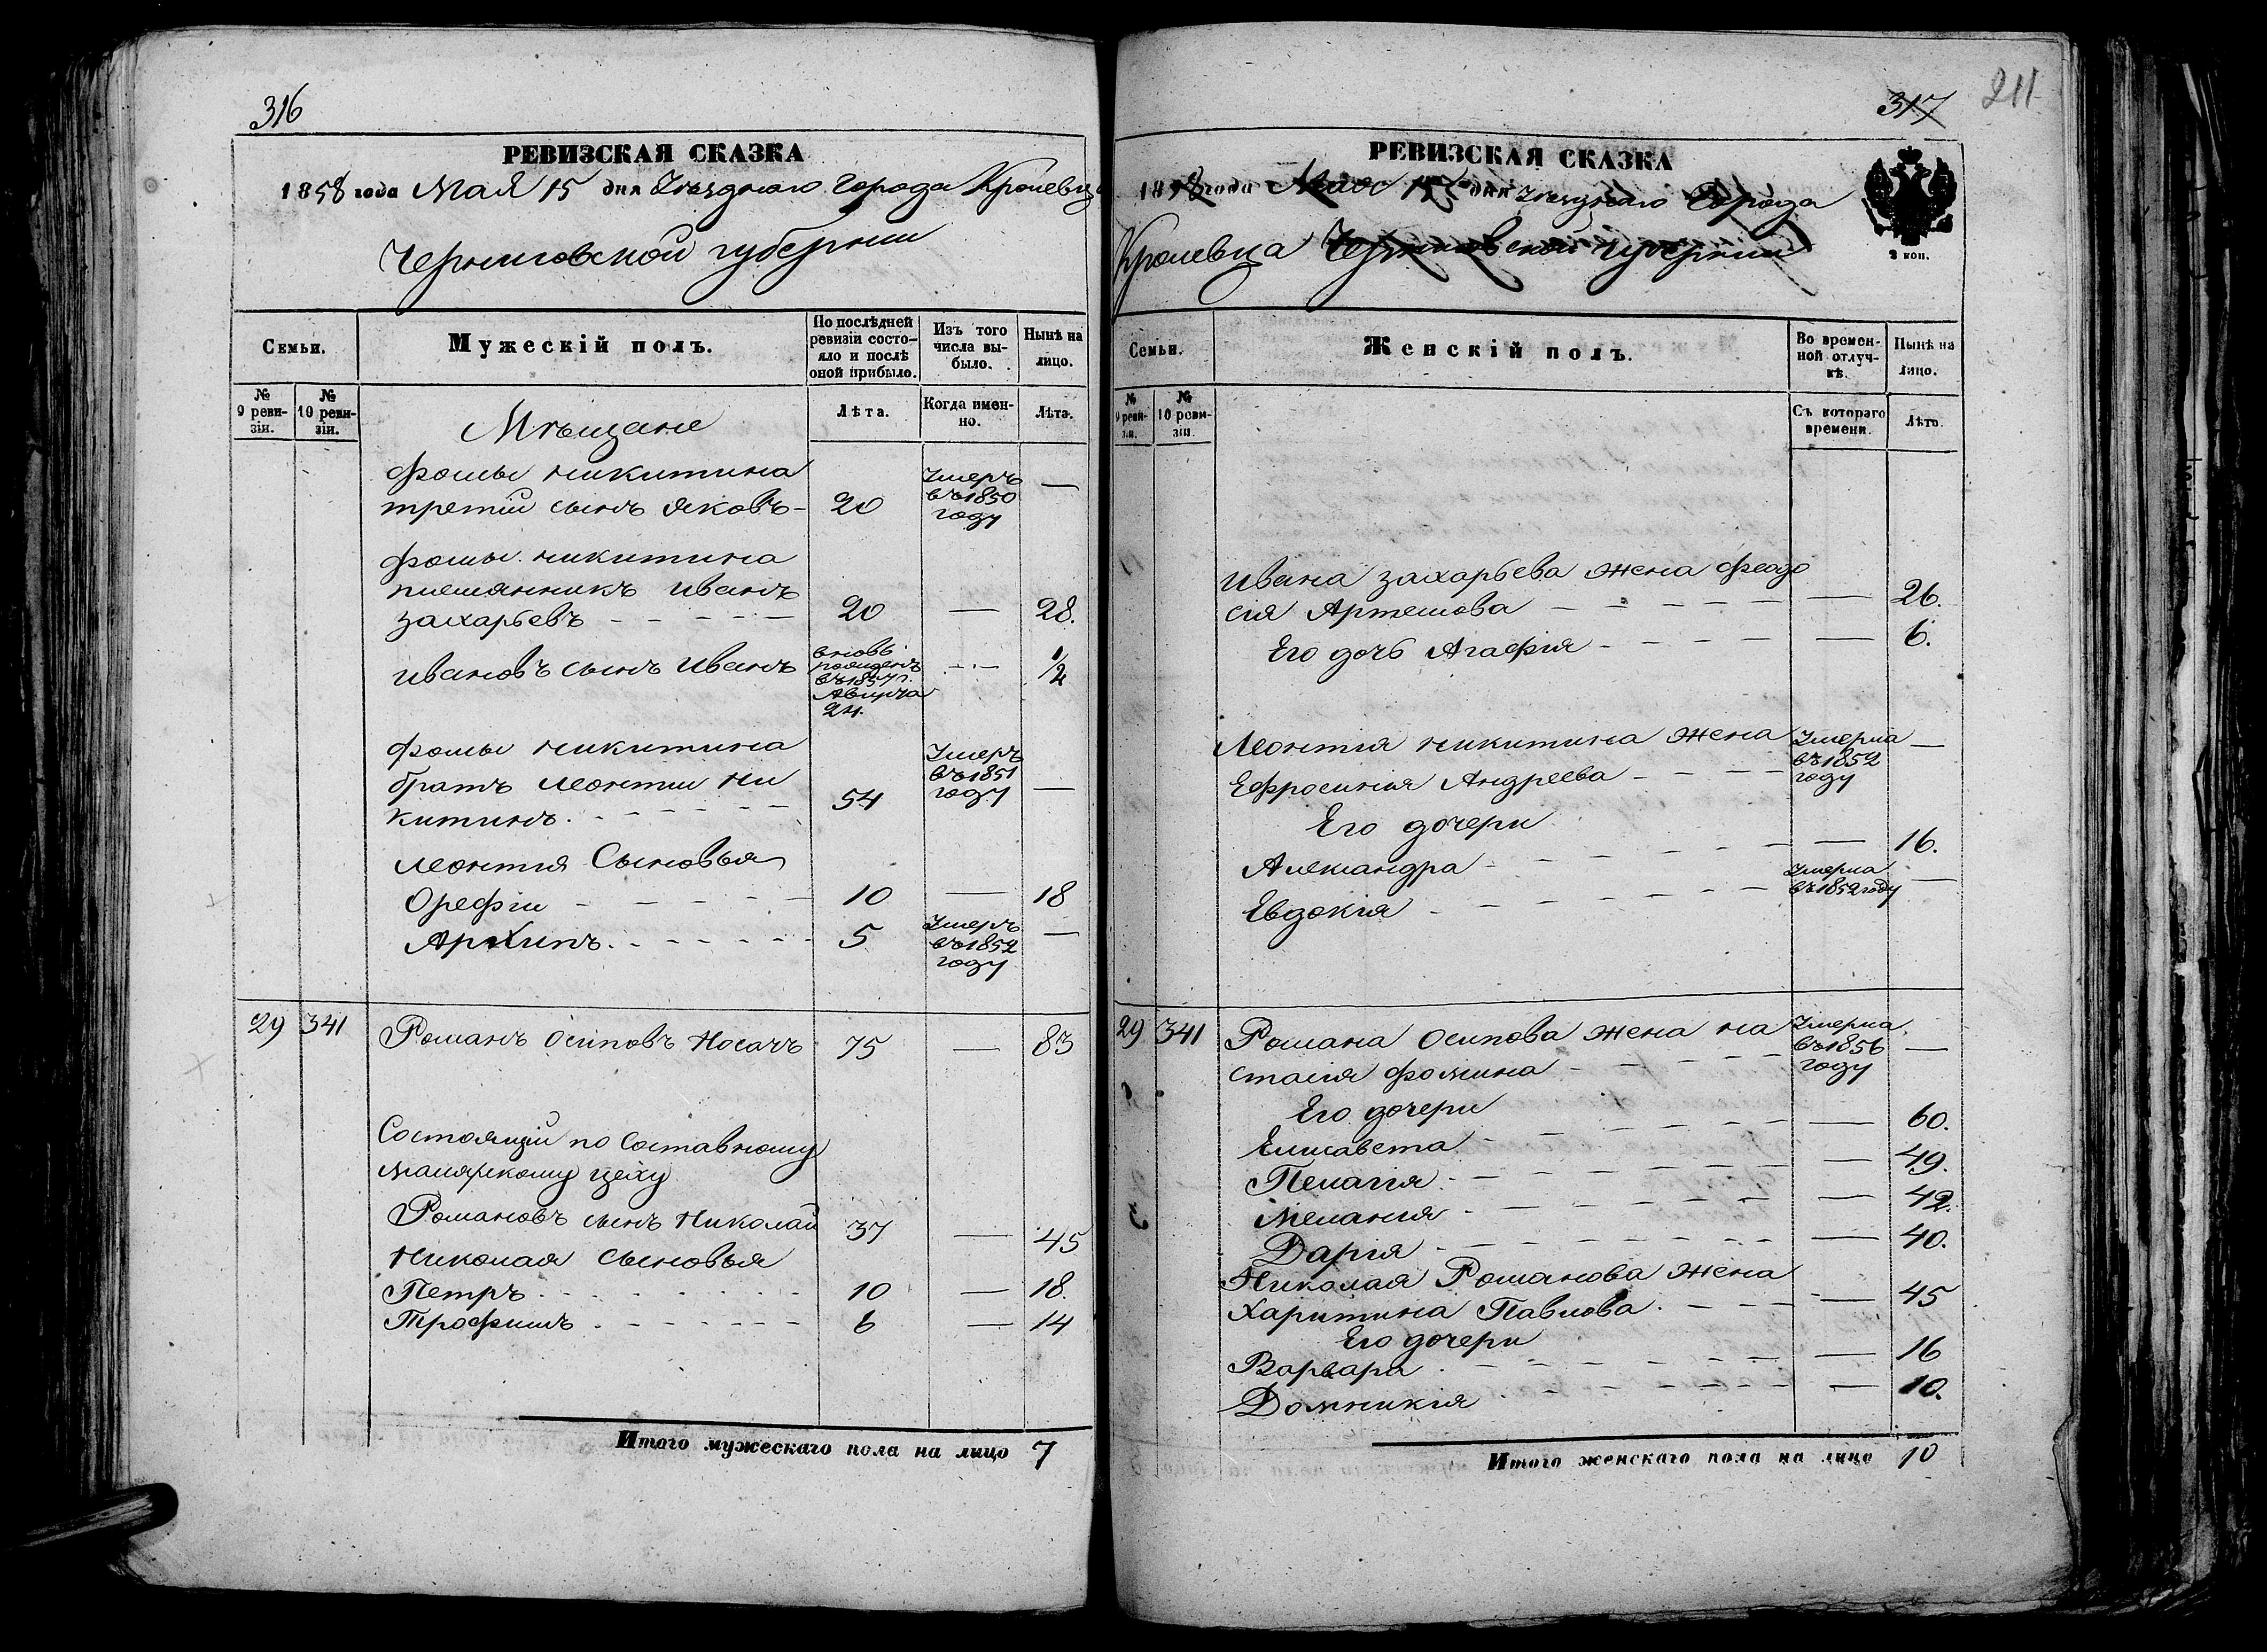 316
РЕВИЗСКАЯ СКАЗКА
1858 года Мая 15 дня Уезднаго города Кролевца
Черниговской губернии
Семьи.
Мужескій полъ.
По послѣдней ревизіи состо-
яло и послѣ
оной прибыло.
Изъ того
числа вы-
было.
Нынѣ на
лицо.
№
9 реви-
зіи.
№
10 реви-
зіи.
Лѣта.
Когда имен-
но.
Лѣта.
Мѣщане
Фомы Никитина
третій сынъ Яковъ - 20 Умеръ въ 1850 году —
Фомы Никитина
племянникъ Иванъ
Захарьевъ - - - - - 20 — 28.
Ивановъ сынъ Иванъ вновь рожденъ въ 1857 г. Августа 24. - - - 1/2
Фомы Никитина
братъ Леонтий Ни
китинъ. - - - - - 54 Умеръ въ 1851 году —
Леонтия Сыновья
Орефiи - - - - - 10 — 18
Архипъ. - - - - - - 5 Умеръ въ 1852 году —
29 341 Романъ Осиповъ Носачъ 75 — 83
Состоящiи по Составному
малярскому цеху
Романовъ сынъ Николай 37 — 45
Николая Сыновья
Петръ - - - - - - - - 10 — 18.
Трофимъ - - - - - - 6 — 14
Итого мужескаго пола на лицо 7
317
211
РЕВИЗСКАЯ СКАЗКА
1858 года Мая 15 дня Уезднаго Города
Кролевца Черниговской губернии
2 коп.
Семьи.
Женскій полъ.
Во времен-
ной отлуч-
кѣ.
Нынѣ на
лицо.
№
9 реви-
зіи.
№
10 реви-
зіи.
Съ котораго
времени.
Лѣта.
Ивана Захарьева жена Феодо
сия Артемова - - - - - — 26.
Его дочь Агафiя - - - - — 6.
Леонтия Никитина жена
Ефросиния Андреева - - - - Умерла въ 1852 году —
Его дочери
Александра - - - - - - — 16.
Евдокия - - - - - - Умерла въ 1852 году —
29 341 Романа Осипова жена На
стасия Фомина - - - - Умерла въ 1856 году —
Его дочери
Елисавета - - - - - - — 60.
Пелагiя. - - - - - - - — 49.
Мелания - - - - - - - — 42.
Дарiя - - - - - - - - — 40.
Николая Романова жена
Харитина Павлова. - - - - — 45
Его дочери
Варвара - - - - - - - — 16
Домникiя - - - - - - - — 10.
Итого женскаго пола на лицо 10